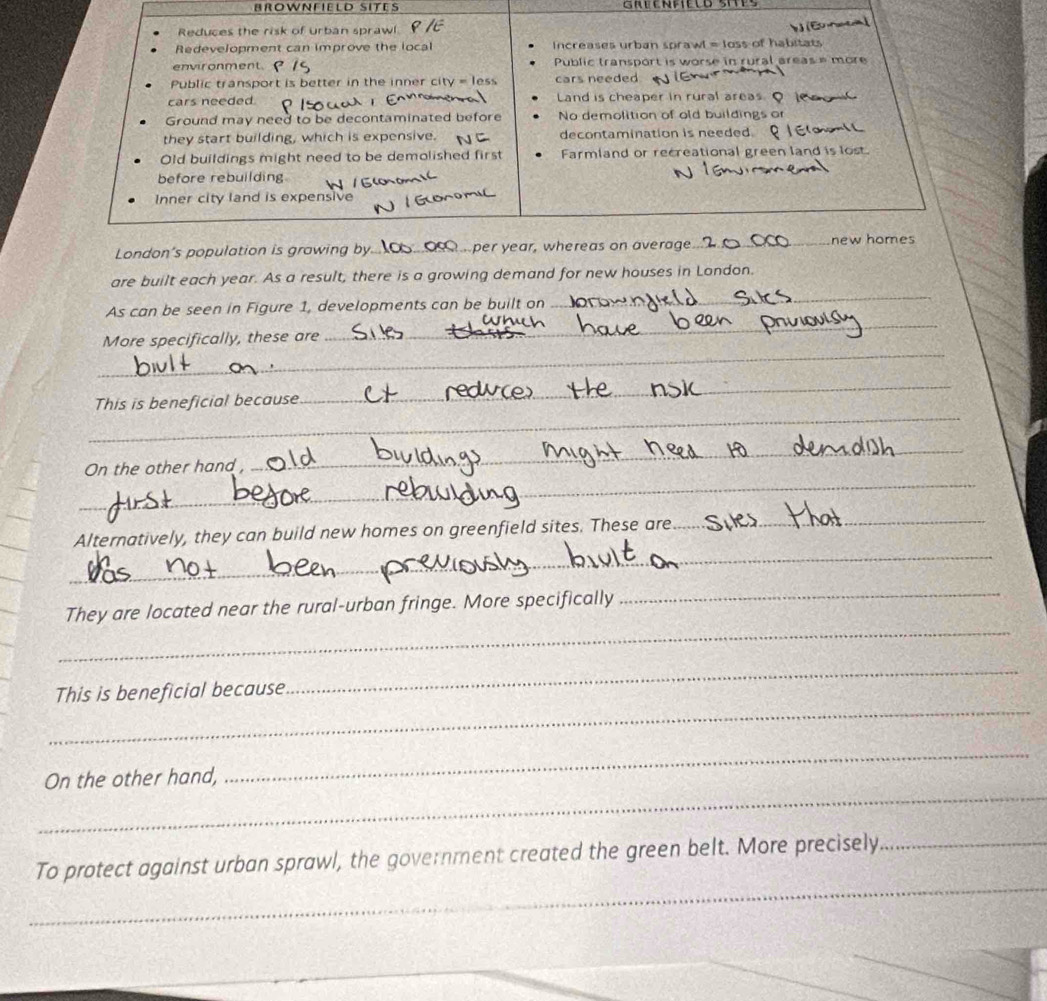 BROWNFIELD SITES
GREENFIELD SITES
• Reduces the risk of urban sprawl. P/E
• Redevelopment can improve the local
environment. P/S
• Public transport is better in the inner city = less
cars needed. P/Social /
• Ground may need to be decontaminated before
they start building, which is expensive. NE
• Old buildings might need to be demolished first
before rebuilding. N/Economic
• Inner city land is expensive N/Economic
• Increases urban sprawl = loss of habitats
• Public transport is worse in rural areas = more
cars needed.
• Land is cheaper in rural areas. P
• No demolition of old buildings or
decontamination is needed. P/Economic
• Farmland or recreational green land is lost.
London's population is growing by 100 000 per year, whereas on average 20 000 new homes
are built each year. As a result, there is a growing demand for new houses in London.
As can be seen in Figure 1, developments can be built on brownfield sites
More specifically, these are sites which have been previously
built on.
This is beneficial because et reduces the risk
On the other hand, old buildings might need to demolish
first before rebuilding
Alternatively, they can build new homes on greenfield sites. These are sites that
has not been previously built on
They are located near the rural-urban fringe. More specifically
This is beneficial because
On the other hand,
To protect against urban sprawl, the government created the green belt. More precisely